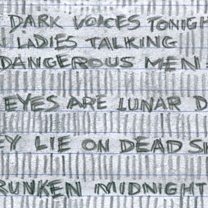 DARK VOICES TONIGH
LADIES TALKING
DANGEROUS MEN
EYES ARE LUNAR D
Y LIE ON DEAD S
RUNKEN MIDNIGHT